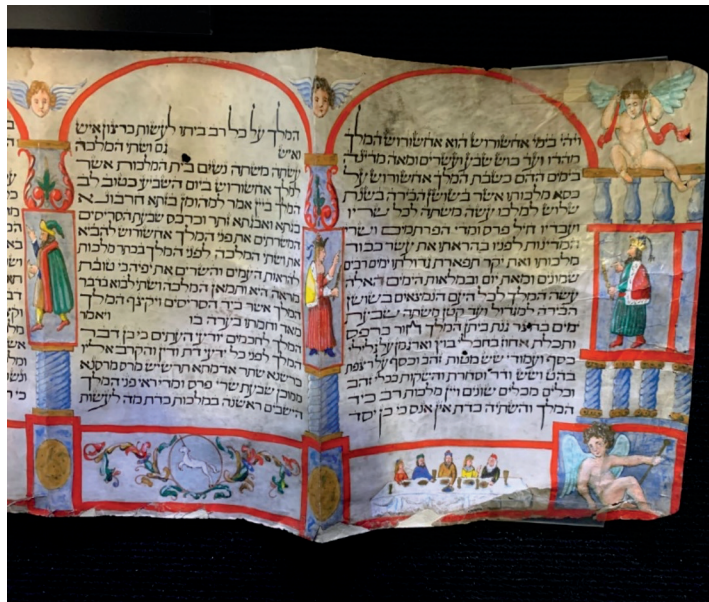 ויהי בימי אחשורוש הוא אחשורוש המלך
מהדו ועד כוש שבע ועשרים ומאה מדינה
בימים ההם כשבת המלך אחשורוש על
כסא מלכותו אשר בשושן הבירה בשנת
שלוש למלכו עשה משתה לכל שריו
ועבדיו חיל פרס ומדי הפרתמים ושרי
המדינות לפניו בהראתו את עשר כבוד
מלכותו ואת יקר תפארת גדולתו ימים רבים
שמונים ומאת יום ובמלאות הימים האלה
עשה המלך לכל העם הנמצאים בשושן
הבירה למגדול ועד קטן משתה שבעת
ימים בחצר גנת ביתן המלך חור כרפס
ותכלת אחוז בחבלי בוץ וארגמן על גלילי
כסף ועמודי שש מטות זהב וכסף על רצפת
בהט ושש ודר וסחרת והשקות בכלי זהב
וכלים מכלים שונים ויין מלכות רב כיד
המלך והשתיה כדת אין אנס כי כן יסד
המלך על כל רב ביתו לעשות כרצון איש
ואיש גם ושתי המלכה
עשתה משתה נשים בית המלכות אשר
למלך אחשורוש ביום השביעי כטוב לב
המלך ביין אמר למהומן בזתא חרבונא
בגתא ואבגתא זתר וכרכס שבעת הסריסים
המשרתים את פני המלך אחשורוש להביא
את ושתי המלכה לפני המלך בכתר מלכות
להראות העמים והשרים את יפיה כי טובת
מראה היא ותמאן המלכה ושתי לבוא בדבר
המלך אשר ביד הסריסים ויקצף המלך
מאד וחמתו בערה בו ויאמר
המלך לחכמים ידעי העתים כי כן דבר
המלך לפני כל ידעי דת ודין והקרב אליו
כרשנא שתר אדמתא תרשיש מרס מרסנא
ממוכן שבעת שרי פרס ומדי ראי פני המלך
הישבים ראשנה במלכות כדת מה לעשות